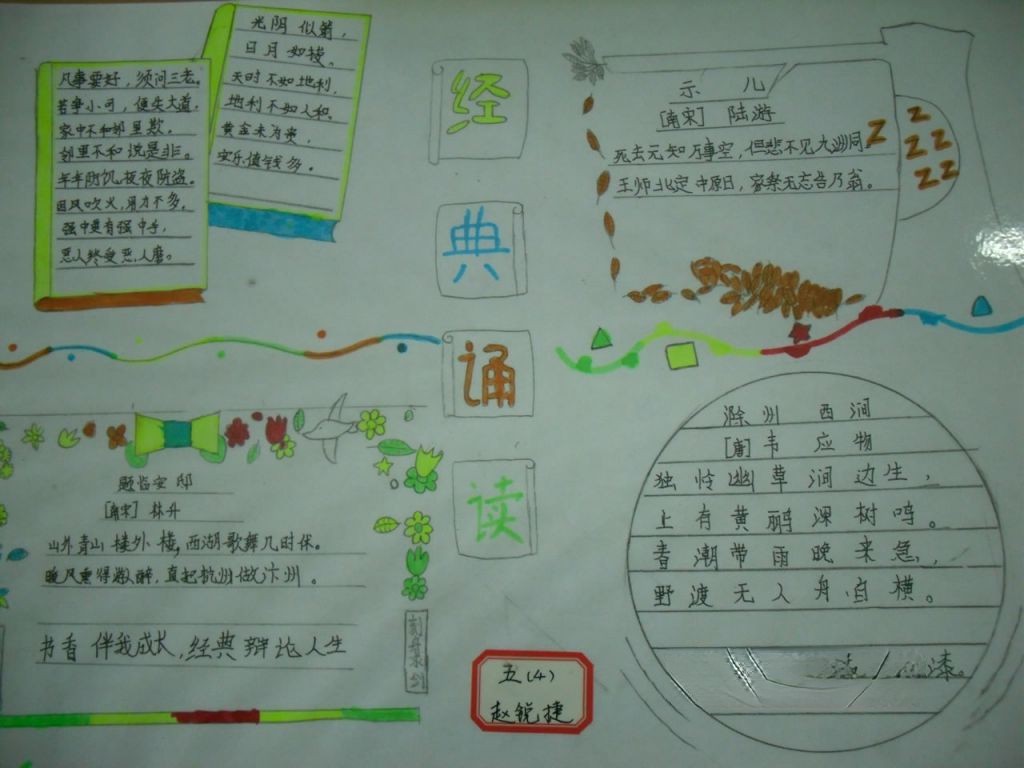 凡事要好，须问三老。
若争小可，便失大道。
家中不和邻里欺，
邻里不和说是非。
年年防饥，夜夜防盗。
因风吹火，用力不多。
强中更有强中手，
恶人终受恶人磨。
光阴似箭，
日月如梭。
天时不如地利，
地利不如人和。
黄金未为贵，
安乐值钱多。
经
典
诵
读
示儿
[南宋] 陆游
死去元知万事空，但悲不见九洲同。
王师北定中原日，家祭无忘告乃翁。
Z
Z
Z Z
Z Z
题临安邸
[南宋] 林升
山外青山楼外楼，西湖歌舞几时休。
暖风熏得游人醉，直把杭州做汴州。
书香伴我成长，经典辩论人生
刻舟求剑
五(4)
赵锐捷
滁州西涧
[唐] 韦应物
独怜幽草涧边生，
上有黄鹂深树鸣。
春潮带雨晚来急，
野渡无人舟自横。
漆。